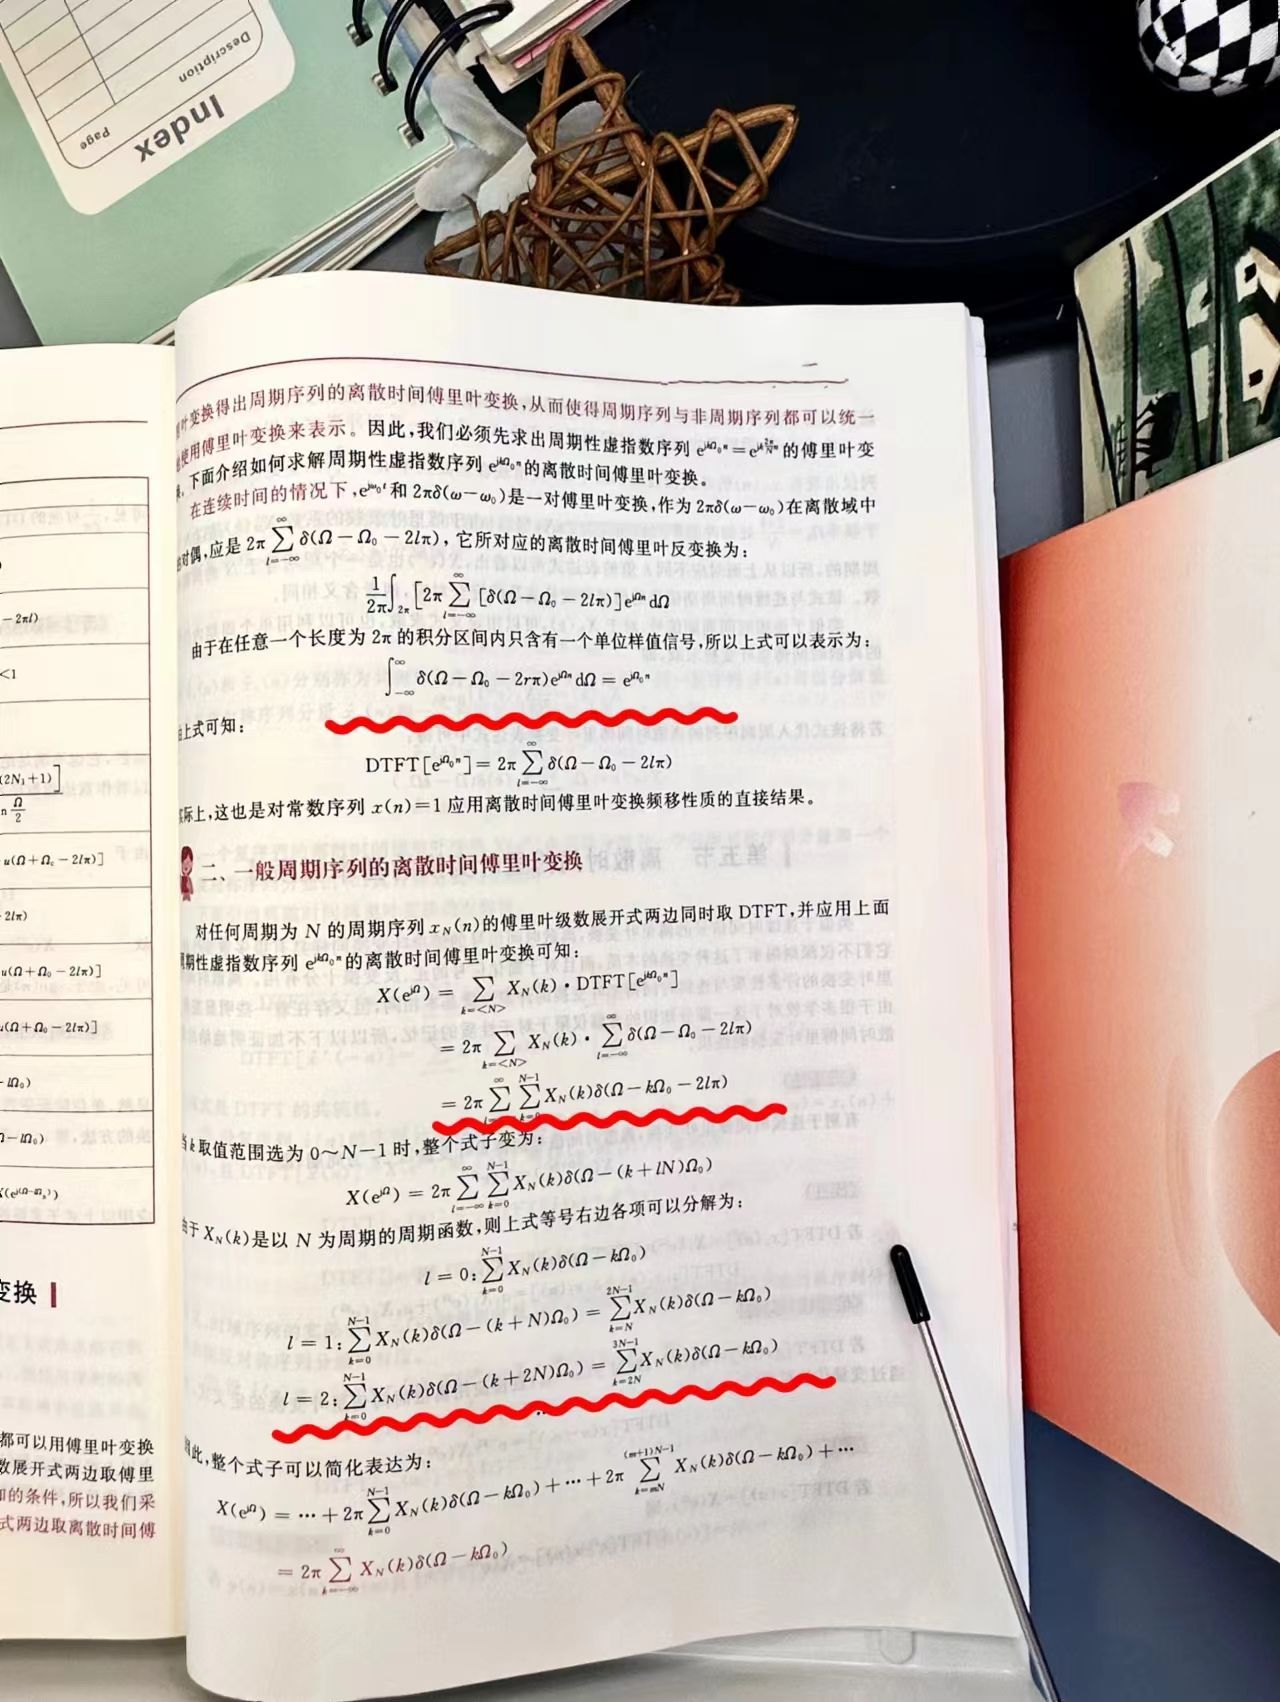 Description
Page
Index
叶变换得出周期序列的离散时间傅里叶变换,从而使得周期序列与非周期序列都可以统一
使用傅里叶变换来表示。因此,我们必须先求出周期性虚指数序列 e^{jkΩ₀n}=e^{jk\frac{2π}{N}n} 的傅里叶变
下面介绍如何求解周期性虚指数序列 e^{jkΩ₀n}的离散时间傅里叶变换。
在连续时间的情况下,e^{jω₀t}和 2πδ(ω−ω₀)是一对傅里叶变换,作为 2πδ(ω−ω₀)在离散域中
对偶,应是 2π∑_{l=−∞}^{∞}δ(Ω−Ω₀−2lπ),它所对应的离散时间傅里叶反变换为:
\frac{1}{2π}∫_{2π}[2π∑_{l=−∞}^{∞}[δ(Ω−Ω₀−2lπ)]e^{jΩn}dΩ
由于在任意一个长度为 2π 的积分区间内只含有一个单位样值信号,所以上式可以表示为:
∫_{−∞}^{∞}δ(Ω−Ω₀−2rπ)e^{jΩn}dΩ=e^{jΩ₀n}
上式可知:
DTFT[e^{jΩ₀n}]=2π∑_{l=−∞}^{∞}δ(Ω−Ω₀−2lπ)
实际上,这也是对常数序列 x(n)=1 应用离散时间傅里叶变换频移性质的直接结果。
二、一般周期序列的离散时间傅里叶变换
对任何周期为 N 的周期序列 x_N(n)的傅里叶级数展开式两边同时取 DTFT,并应用上面
周期性虚指数序列 e^{jkΩ₀n}的离散时间傅里叶变换可知:
X(e^{jΩ})=∑_{k=<N>}X_N(k)·DTFT[e^{jkΩ₀n}]
=2π∑_{k=<N>}X_N(k)·∑_{l=−∞}^{∞}δ(Ω−Ω₀−2lπ)
=2π∑^{∞}∑_{k=0}^{N−1}X_N(k)δ(Ω−kΩ₀−2lπ)
当 k 取值范围选为 0～N−1 时,整个式子变为:
X(e^{jΩ})=2π∑_{l=−∞}^{∞}∑_{k=0}^{N−1}X_N(k)δ(Ω−(k+lN)Ω₀)
由于 X_N(k)是以 N 为周期的周期函数,则上式等号右边各项可以分解为:
l=0:∑_{k=0}^{N−1}X_N(k)δ(Ω−kΩ₀)
l=1:∑_{k=0}^{N−1}X_N(k)δ(Ω−(k+N)Ω₀)=∑_{k=N}^{2N−1}X_N(k)δ(Ω−kΩ₀)
l=2:∑_{k=0}^{N−1}X_N(k)δ(Ω−(k+2N)Ω₀)=∑_{k=2N}^{3N−1}X_N(k)δ(Ω−kΩ₀)
因此,整个式子可以简化表达为:
X(e^{jΩ})=…+2π∑_{k=0}^{N−1}X_N(k)δ(Ω−kΩ₀)+…+2π∑_{k=mN}^{(m+1)N−1}X_N(k)δ(Ω−kΩ₀)+…
=2π∑_{k=−∞}^{∞}X_N(k)δ(Ω−kΩ₀)
−2πl)
<1
(2N₁+1)]
\frac{Ω}{2}
u(Ω+Ω_c−2lπ)]
2lπ)
u(Ω+Ω₀−2lπ)]
(Ω+Ω₀−2lπ)]
变换
都可以用傅里叶变换
数展开式两边取傅里
的条件,所以我们采
式两边取离散时间傅